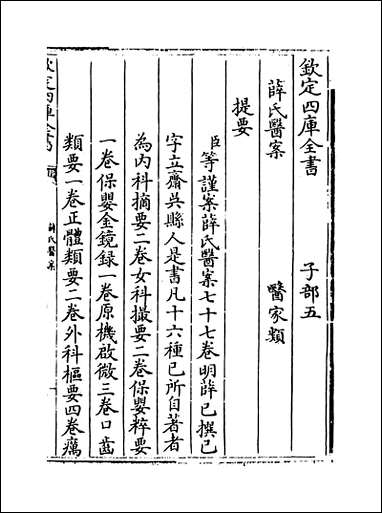 欽定四庫全書　子部五
薛氏醫案　醫家類
提要
臣等謹案薛氏醫案七十七卷明薛已撰已
字立齋吳縣人是書凡十六種已所自著者
為內科摘要二卷女科撮要二卷保嬰粹要
一卷保嬰金鏡録一卷原機啟微三卷口齒
類要一卷正體類要二卷外科樞要四卷癘
欽定四庫全書
薛氏醫案